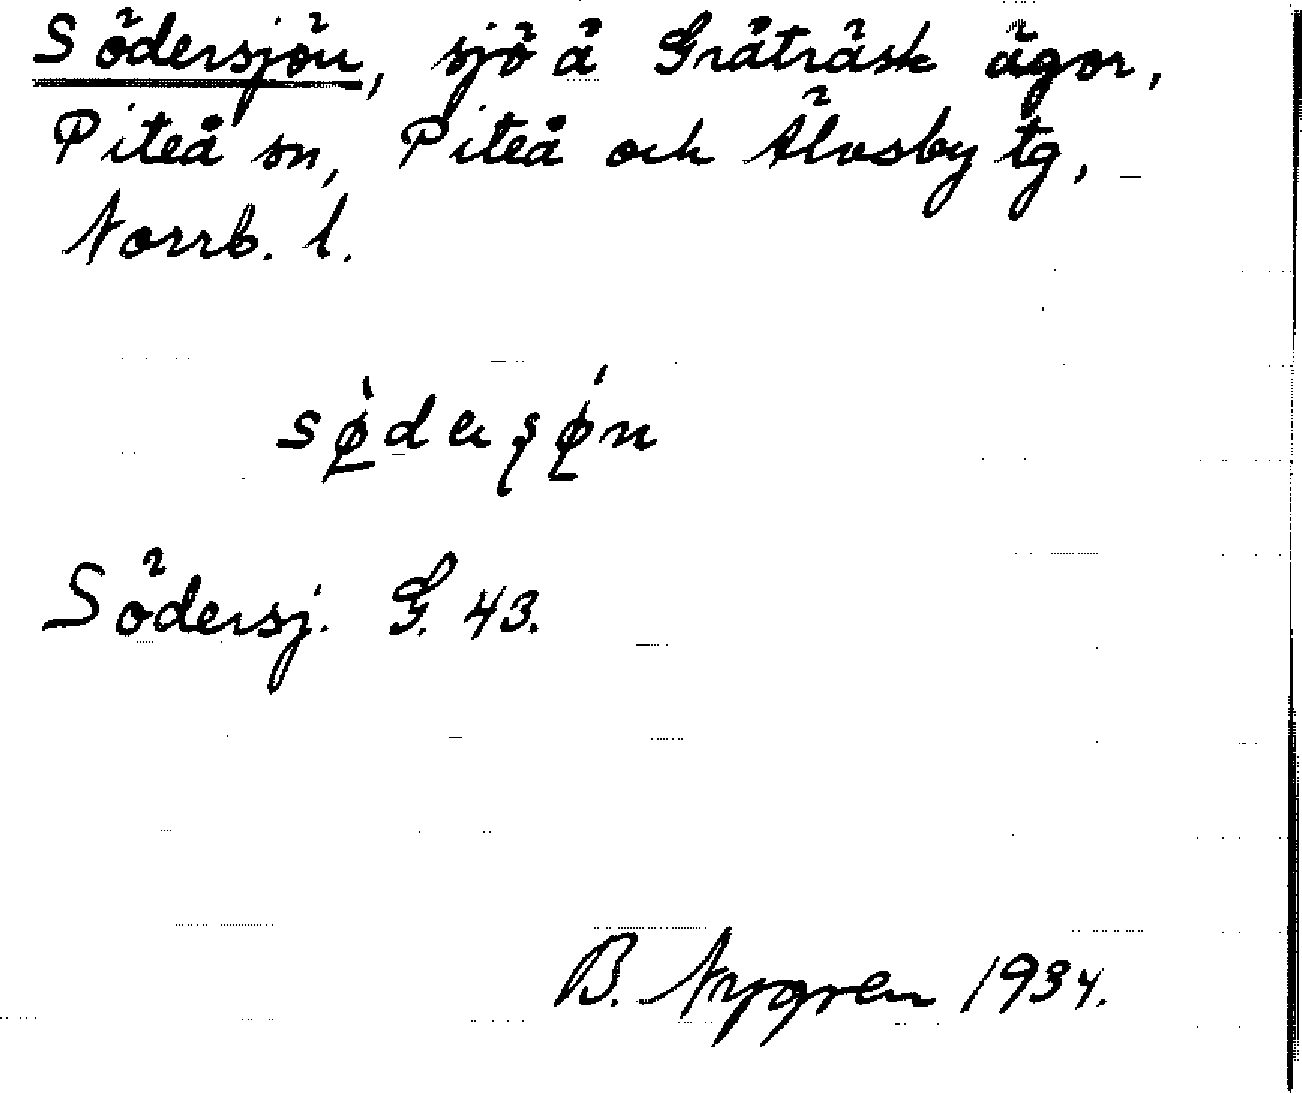 Södersjön, sjö å Gråträsk ägor,
Piteå sn, Piteå och Älvsby tg,
Norrb. l.
Södersj. G. 43.
B. Nygren 1934.